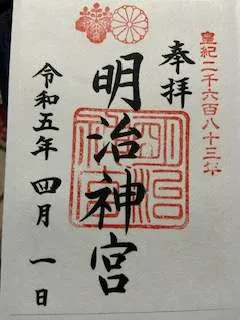 皇紀二千六百八十三年
奉拝
明治神宮
令和五年 四月 一日
明治神宮